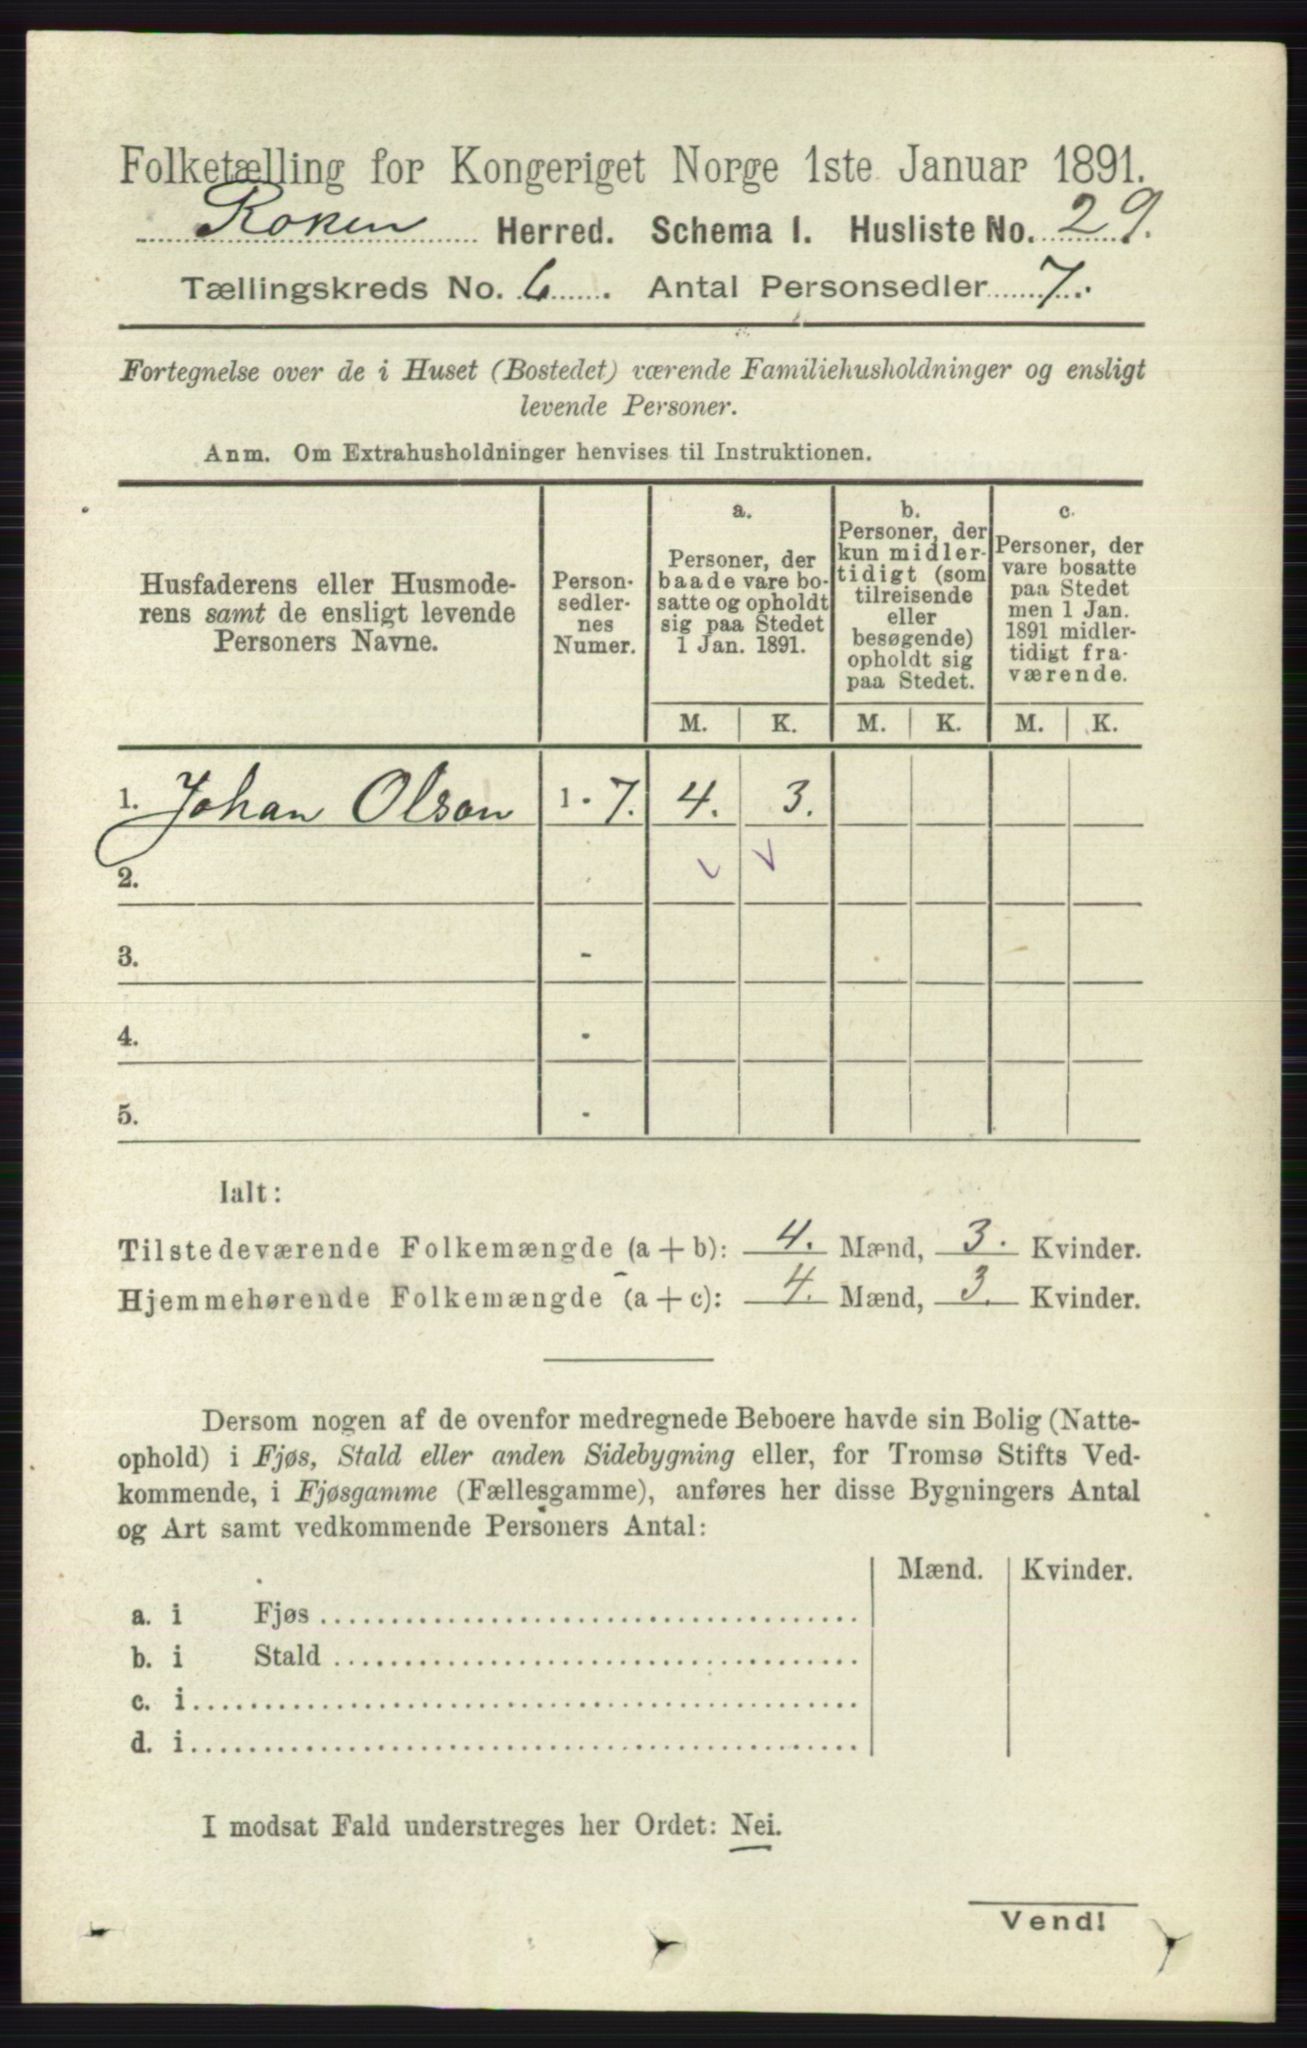 Folketælling for Kongeriget Norge 1ste Januar 1891.
Röken Herred. Schema 1. Husliste No. 29.
Tællingskreds No. 6. Antal Personsedler 7.
Fortegnelse over de i Huset (Bostedet) værende Familiehusholdninger og ensligt
levende Personer.
Anm. Om Extrahusholdninger henvises til Instruktionen.
Husfaderens eller Husmode-
rens samt de ensligt levende
Personers Navne.
Person-
sedler-
nes
Numer.
a.
Personer, der
baade vare bo-
satte og opholdt
sig paa Stedet
1 Jan. 1891.
b.
Personer, der
kun midler-
tidigt (som
tilreisende
eller
besøgende)
opholdt sig
paa Stedet.
c.
Personer, der
vare bosatte
paa Stedet
men 1 Jan.
1891 midler-
tidigt fra-
værende.
M. K. M. K. M. K.
1. Johan Olsen 1 - 7. 4. 3.
2.
3. -
4. -
5. -
Ialt:
Tilstedeværende Folkemængde (a + b): 4. Mænd, 3. Kvinder.
Hjemmehørende Folkemængde (a + c): 4. Mænd, 3. Kvinder.
Dersom nogen af de ovenfor medregnede Beboere havde sin Bolig (Natte-
ophold) i Fjøs, Stald eller anden Sidebygning eller, for Tromsø Stifts Ved-
kommende, i Fjøsgamme (Fællesgamme), anføres her disse Bygningers Antal
og Art samt vedkommende Personers Antal:
Mænd. Kvinder.
a. i Fjøs
b. i Stald
c. i
d. i
I modsat Fald understreges her Ordet: Nei.
Vend!